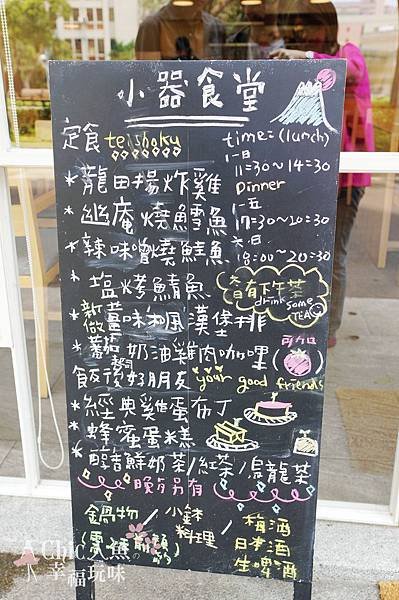 小器食堂
定食 teishoku
time=(lunch)
一~日
11=30~14=30
Dinner
一~五
17=30~20=30
六.日
18:00~20=30
*龍田揚炸雞
*幽庵燒鱈魚
*辣味噌燒鯖魚
*塩烤鯖魚
皆有下午茶
drink some
TEA
新做 薑味和風漢堡排
*蕃茄奶油雞肉咖哩(可加
飯後好朋友 your good friends
*經典雞蛋布丁
*蜂蜜蛋糕
*醇香鮮奶茶/紅茶/烏龍茶
晚另有
鍋物/小鉢料理/梅酒
日本酒
生啤酒
A Chic 人魚
幸福玩味